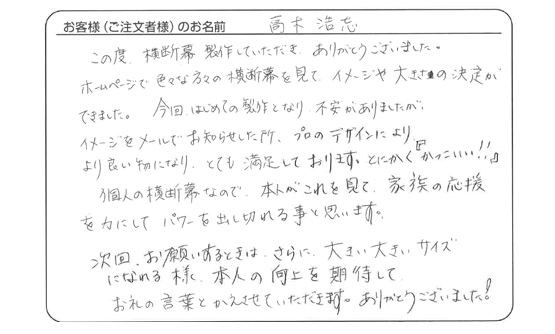 お客様(ご注文者様)のお名前 高木 浩志
この度、横断幕 製作していただき、ありがとうございました。
ホームページで色々な方々の横断幕を見て、イメージや大きさの決定が
できました。 今回、はじめての製作となり、不安がありましたが、
イメージをメールでお知らせした所、プロのデザインにより
より良い物になり、とても満足しております。とにかく『かっこいい!!』
個人の横断幕なので、本人がこれを見て、家族の応援
を力にして パワーを出し切れる事と思います。
次回、お願いするときは、さらに、大きい大きいサイズ
になれる様、本人の向上を期待して、
お礼の言葉とかえさせていただきます。ありがとうございました!